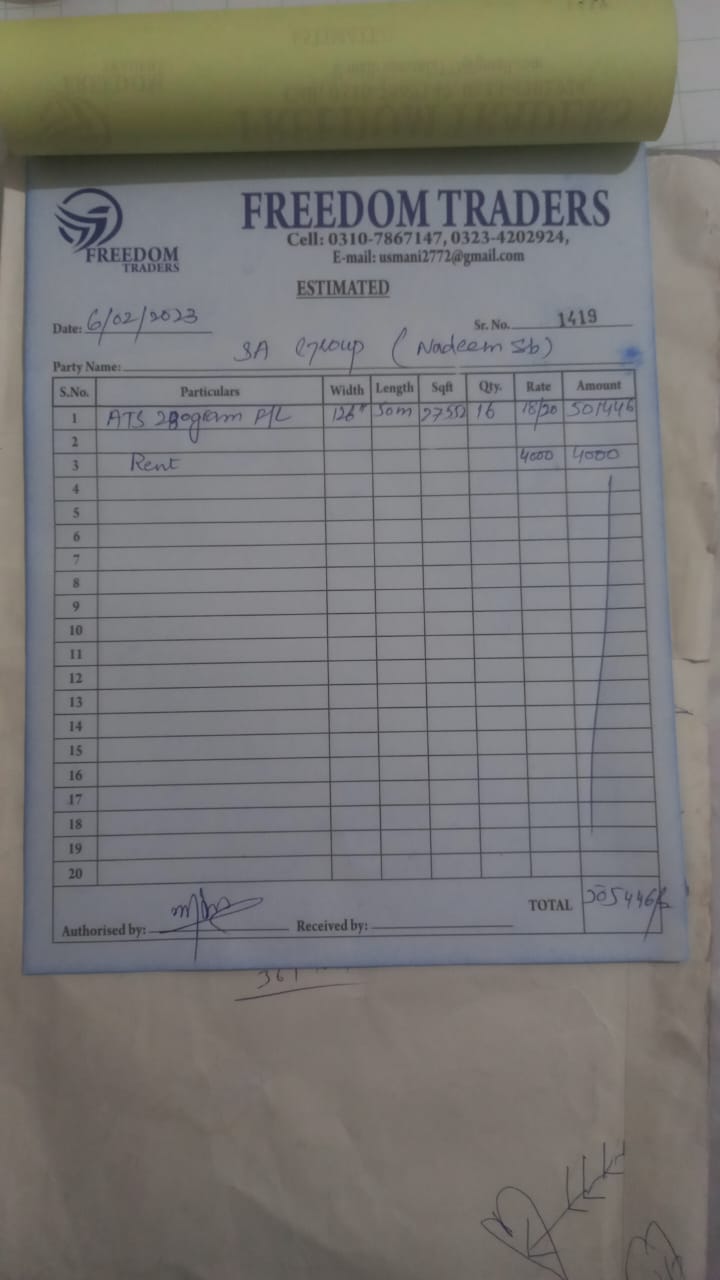 FREEDOM TRADERS
FREEDOM
TRADERS
Cell: 0310-7867147, 0323-4202924,
E-mail: usmani2772@gmail.com
ESTIMATED
Date: 6/02/2023
Sr. No. 1419
Party Name: SA Group (Nadeem Sb)
S.No. Particulars Width Length Sqft Qty. Rate Amount
1 ATS gram P/L 126" 50m 2755 16 18/20 501446
2
3 Rent 4000 4000
4
5
6
7
8
9
10
11
12
13
14
15
16
17
18
19
20
TOTAL 505446/-
Authorised by: Received by: